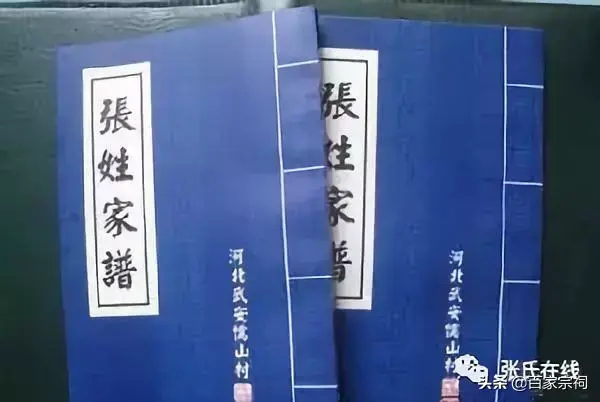 張姓家譜
河北武安儒山村
張姓家譜
河北武安儒山村
张氏在线
头条@百家宗祠